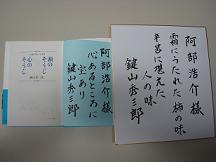 阿部浩介様
霜にうたれた柿の味
辛苦に堪えた
人の味
鍵山秀三郎
阿部浩介様
心あるところに
宝あり
鍵山秀三郎
頭のそうじ
心のそうじ